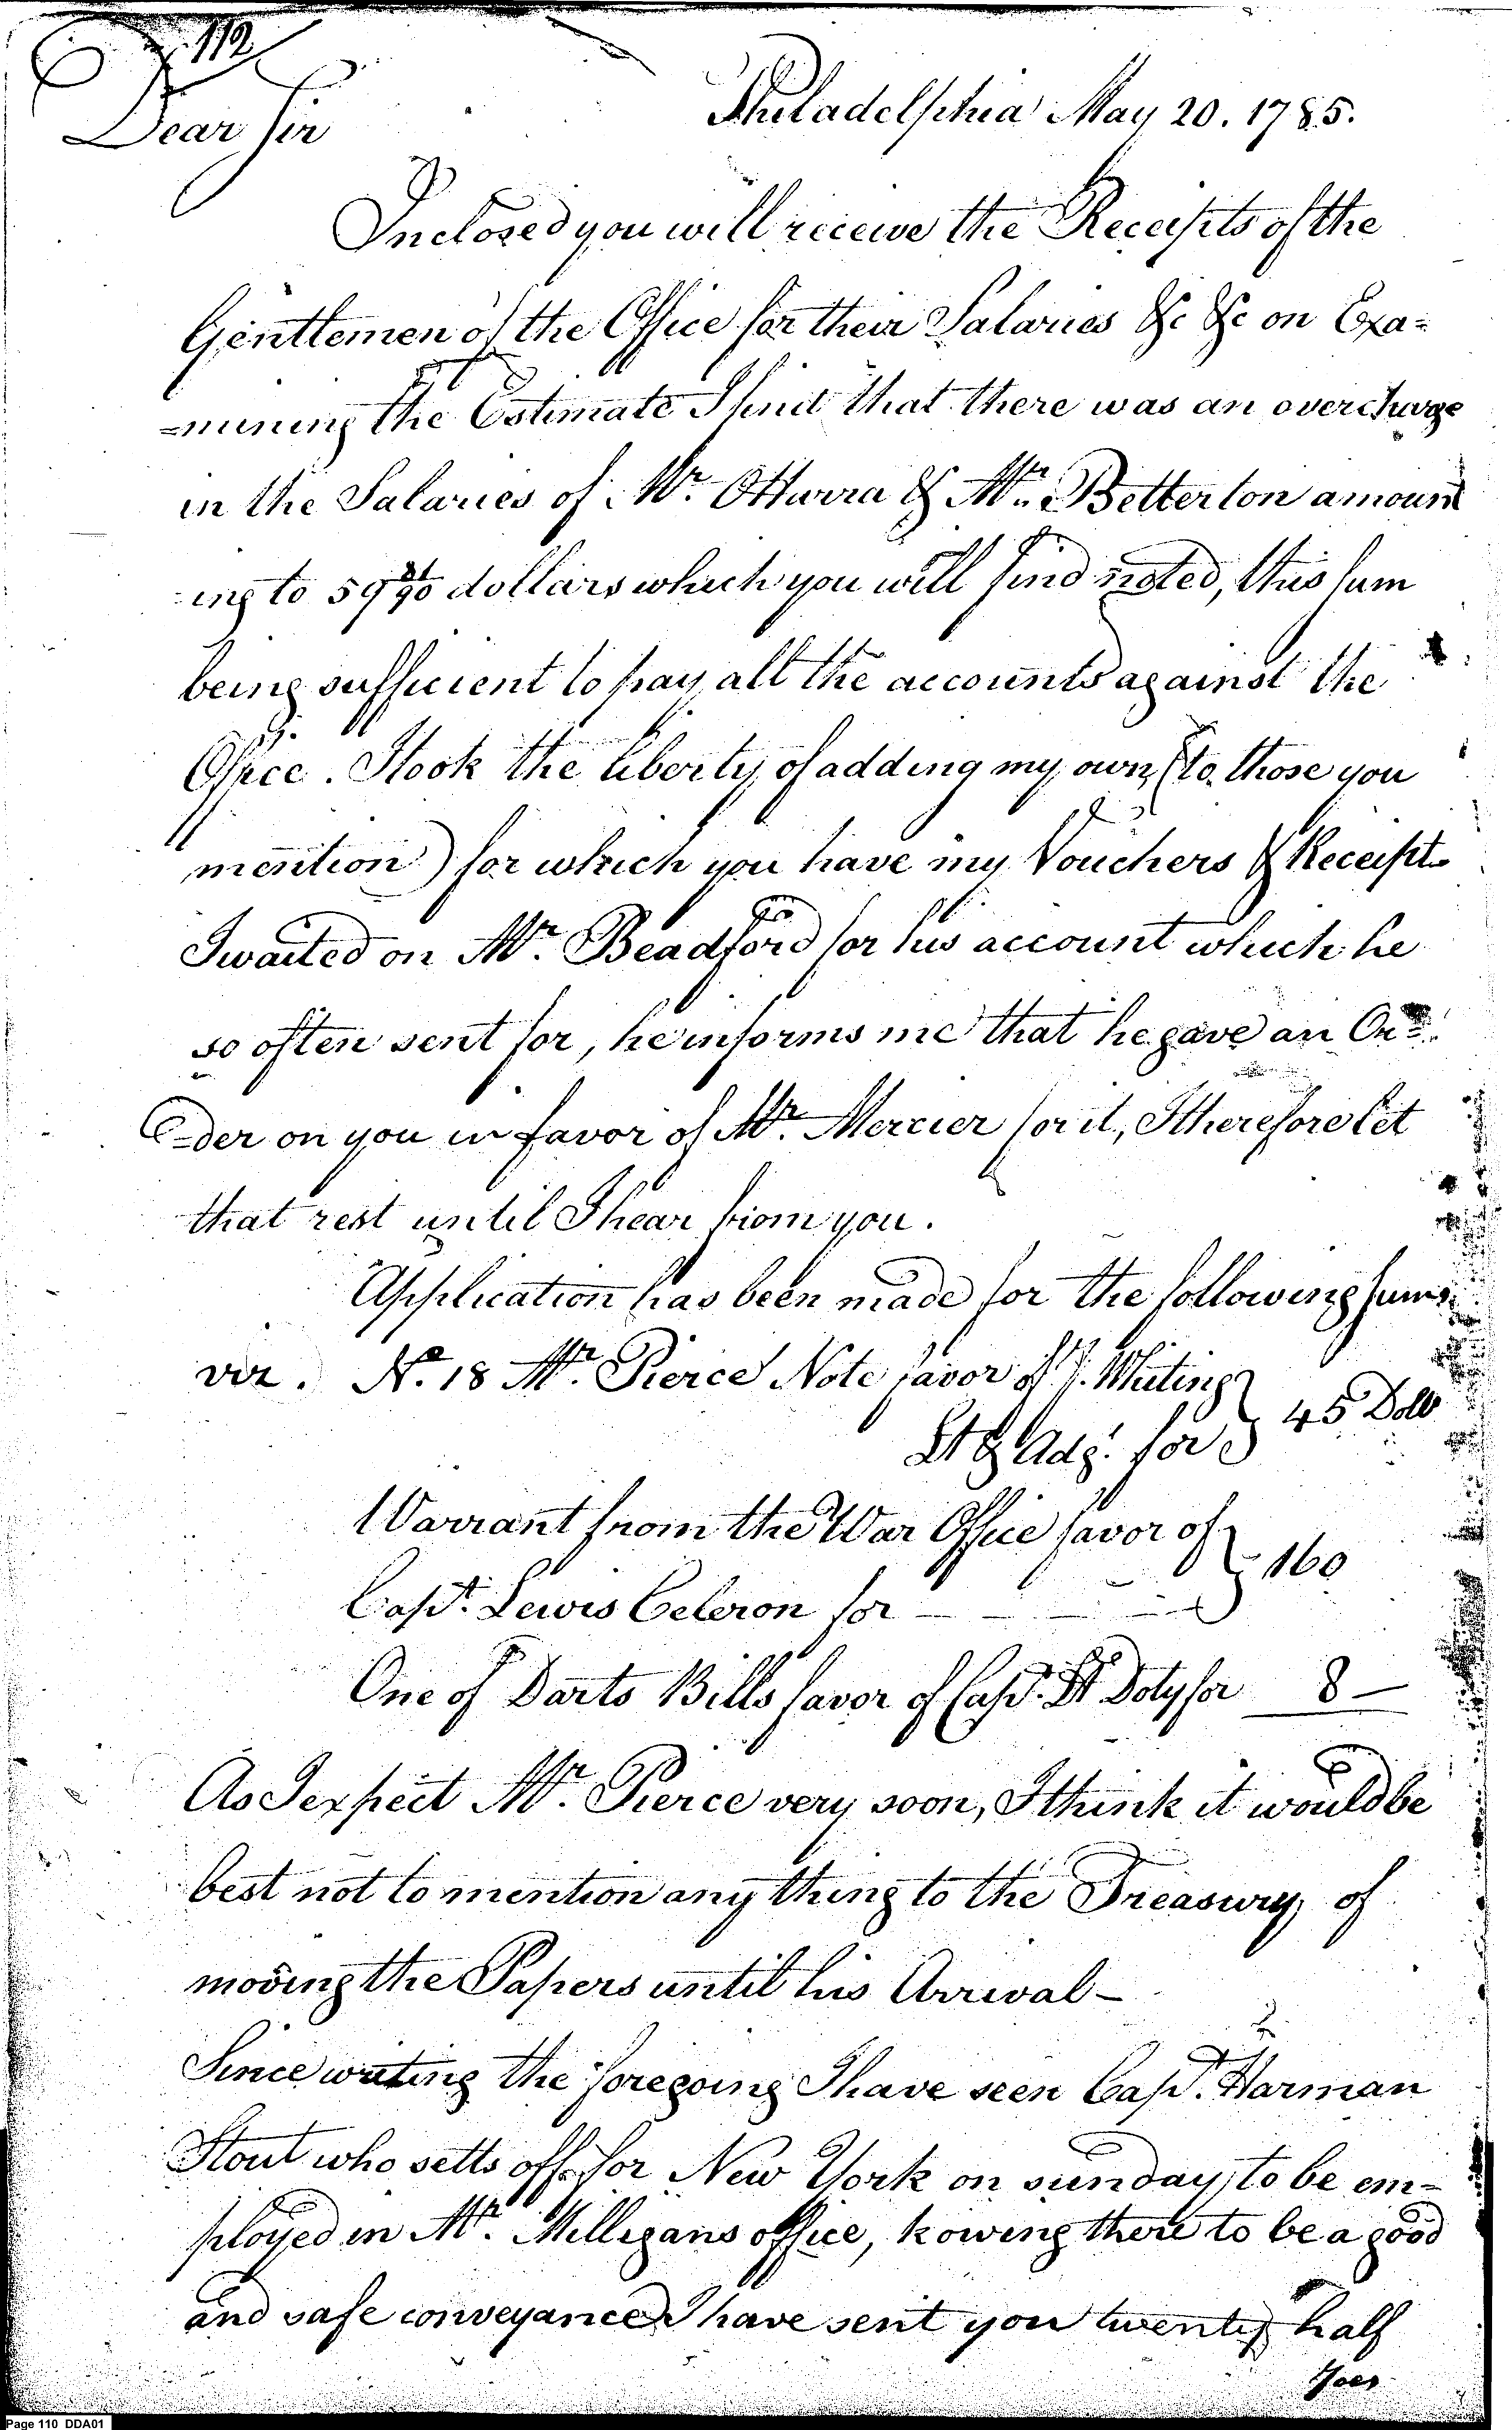 112
Philadelphia May 20. 1785.
Dear Sir
Inclosed you will receive the Receipts of the
Gentlemen of the Office for their Salaries &c &c on Exa=
=mining the Estimate I find that there was an overcharge
in the Salaries of Mr. OHarra & Mr. Betterton amount
ing to 59 /90 dollars which you will find noted, this sum
being sufficient to pay all the accounts against the
Office. I took the liberty of adding my own (to those you
mention) for which you have my Vouchers & Receipts
I waited on Mr. Beadford for his account which he
so often sent for, he informs me that he gave an Or=
=der on you in favor of Mr. Mercier for it, I therefore let
that rest until I hear from you.
Application has been made for the following sums
viz. No. 18 Mr. Pierce Note favor of J. Whiting } 45 Dolls
Lt & Adjt. for
Warrant from the War Office favor of } 160
Capt. Lewis Celeron for - - - -
One of Darts Bills favor of Capt. Doty for 8 —
As I expect Mr. Pierce very soon, I think it would be
best not to mention any thing to the Treasury of
moving the Papers until his Arrival -
Since writing the foregoing I have seen Capt. Harman
Stout who setts off for New York on sunday, to be em=
ployed in Mr. Milligans office, kowing there to be a good
and safe conveyance I have sent you twenty half
Joes
Page 110 DDA01